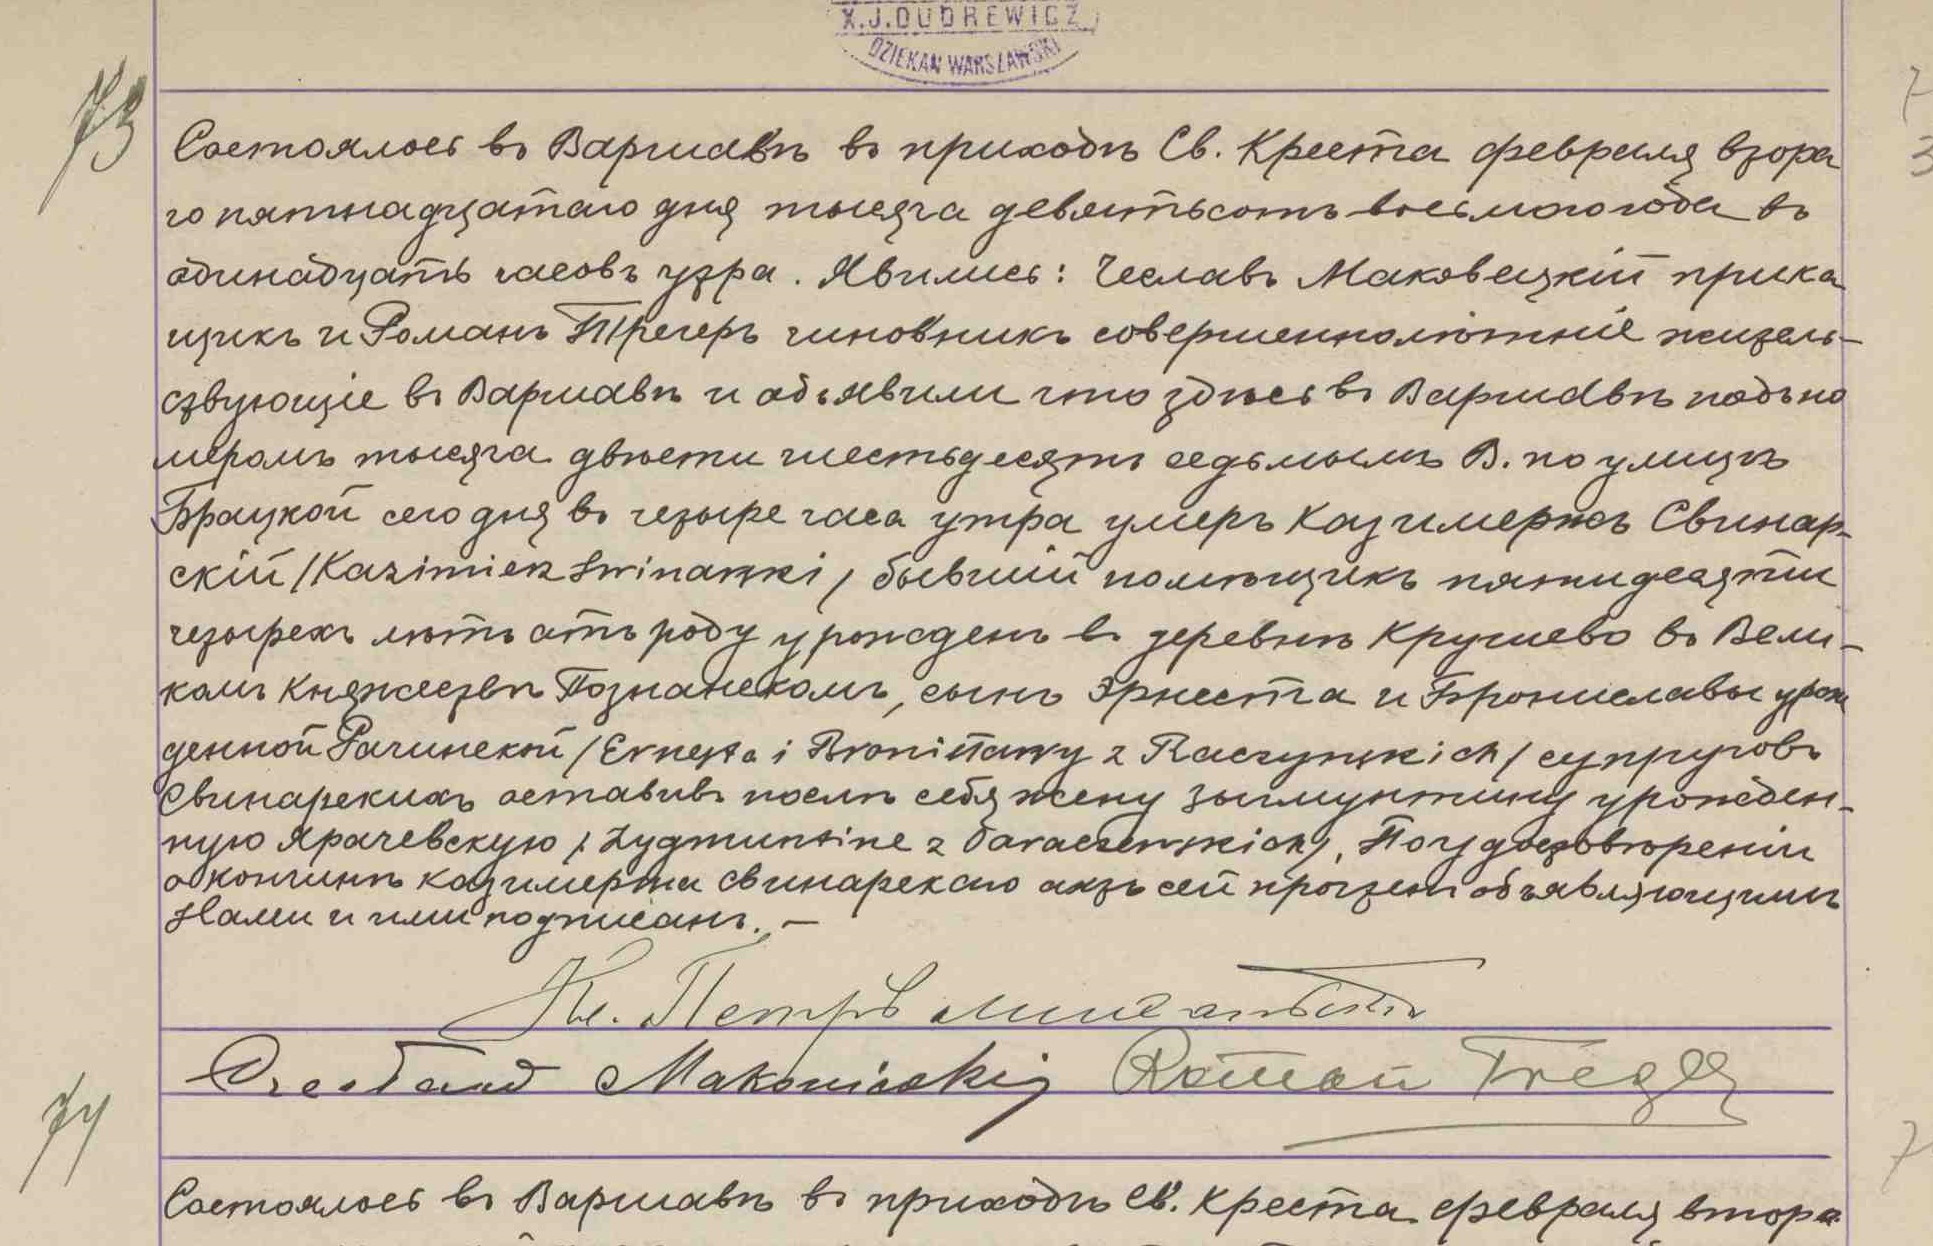 X.J.DUDREWICZ
DZIEKAN WARSZAWSKI
73
Состоялось въ Варшавѣ въ приходѣ Св. Креста февраля втора
го пятнадцатаго дня тысяча девятьсотъ восьмого года въ
одинадцать часовъ утра. Явились: Чеславъ Маковецкій прика
щикъ и Романъ Трегеръ чиновникъ совершеннолѣтніе житель-
ствующіе въ Варшавѣ и объявили что здѣсь въ Варшавѣ подъ но
меромъ тысяча двѣсти шестьдесятъ седьмымъ В. по улицѣ
Брацкой сего дня въ четыре часа утра умеръ Казимержъ Свинар-
скій /Kazimierz Swinarski/ бывшій помѣщикъ пятидесяти
четырехъ лѣтъ отъ роду урожденъ въ деревнѣ Кручево въ Вели-
комъ Княжествѣ Познанскомъ, сынъ Эрнеста и Брониславы урож
денной Рачинской /Ernesta i Bronisławy z Raczynskich/ супруговъ
Свинарскихъ оставивъ послѣ себя жену Зыгмунтину урожден-
ную Ярачевскую /Zygmuntine z Jaraczewskich/. По удостовѣреніи
о кончинѣ Казимержа Свинарскаго актъ сей прочтенъ объявляющимъ
Нами и ими подписанъ. -
Кс. Петръ
Czesław Makowiecki Roman Tréger
7
3
74
7
Состоялось въ Варшавѣ въ приходѣ Св. Креста февраля втора